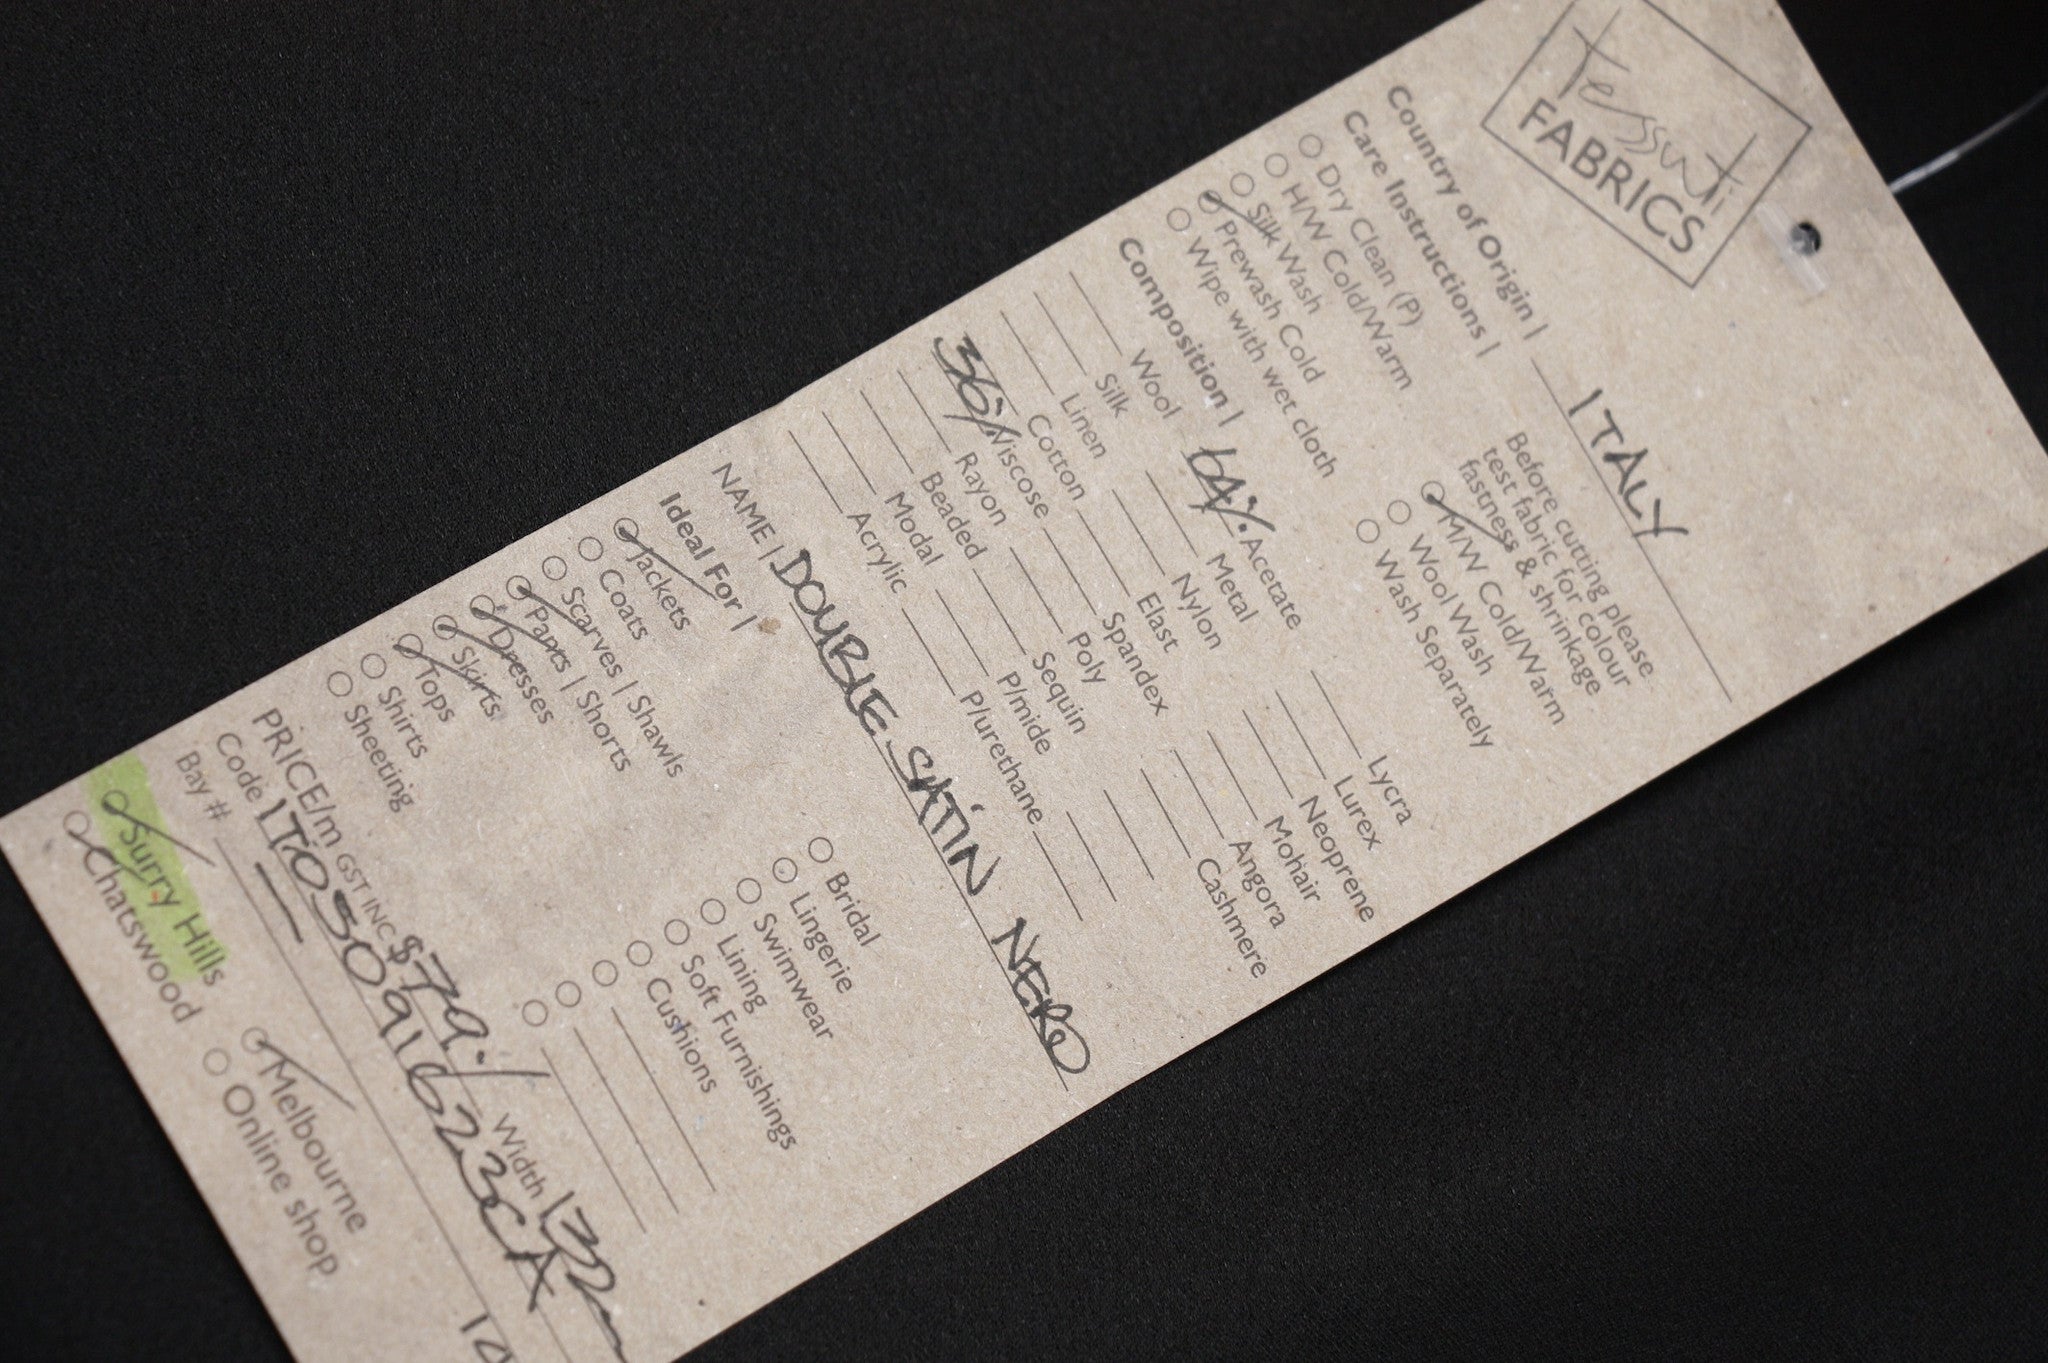 tessuti
FABRICS
Country of Origin | ITALY
Care Instructions |
Dry Clean (P)
H/W Cold/Warm
Silk Wash
Prewash Cold
Wipe with wet cloth
Before cutting please
test fabric for colour
fastness & shrinkage
M/W Cold/Warm
Wool Wash
Wash Separately
Composition |
Wool 64% Acetate Lycra
Silk Metal Lurex
Linen Nylon Neoprene
Cotton Elast Mohair
36% Viscose Spandex Angora
Rayon Poly Cashmere
Beaded Sequin
Modal P/mide
Acrylic P/urethane
NAME | DOUBLE SATIN NERO
Ideal For |
Jackets
Coats
Scarves | Shawls
Pants | Shorts
Dresses
Skirts
Tops
Shirts
Sheeting
Bridal
Lingerie
Swimwear
Lining
Soft Furnishings
Cushions
PRICE/m GST INC $79. Width 132
Code ITIO50916233CA
Bay #
Surry Hills
Chatswood
Melbourne
Online shop